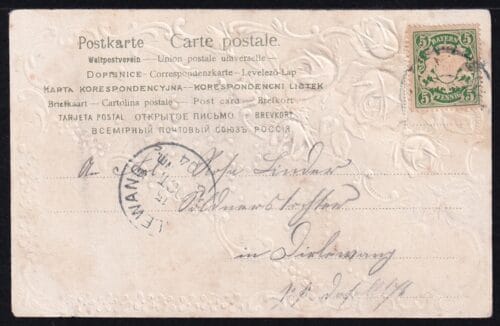 Postkarte Carte postale.
Weltpostverein — Union postale universelle —
DOPISNICE — Correspondenzkarte — Levelező-Lap
KARTA KORESPONDENCYJNA — KORESPONDENCNI LISTEK
Briefkaart — Cartolina postale — Post card — Brefkort
TARJETA POSTAL ОТКРЫТОЕ ПИСЬМО BREVKORT
ВСЕМІРНЫЙ ПОЧТОВЫЙ СОЮЗЪ РОССІЯ
5 BAYERN 5
5 PFENNIG 5
15 OCT
04
Rosa Linder
Söldnerstochter
in Dirlewang